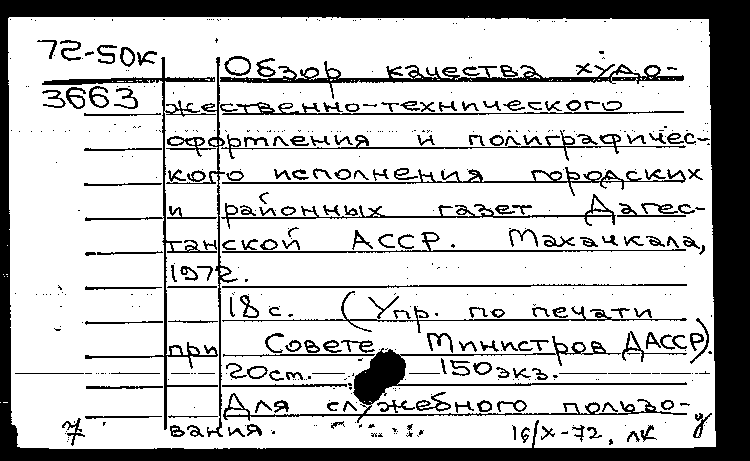 72-50к
3663
Обзор качества худо-
жественно-технического
офортления и полиграфичес-
кого исполнения городских
и районных газет Дагес-
танской АССР. Махачкала,
1972.
18 с. (Упр. по печати
при Совете Министров ДАССР).
20ст. 150экз.
Для служебного пользо-
вания.
7 16/X-72, лк